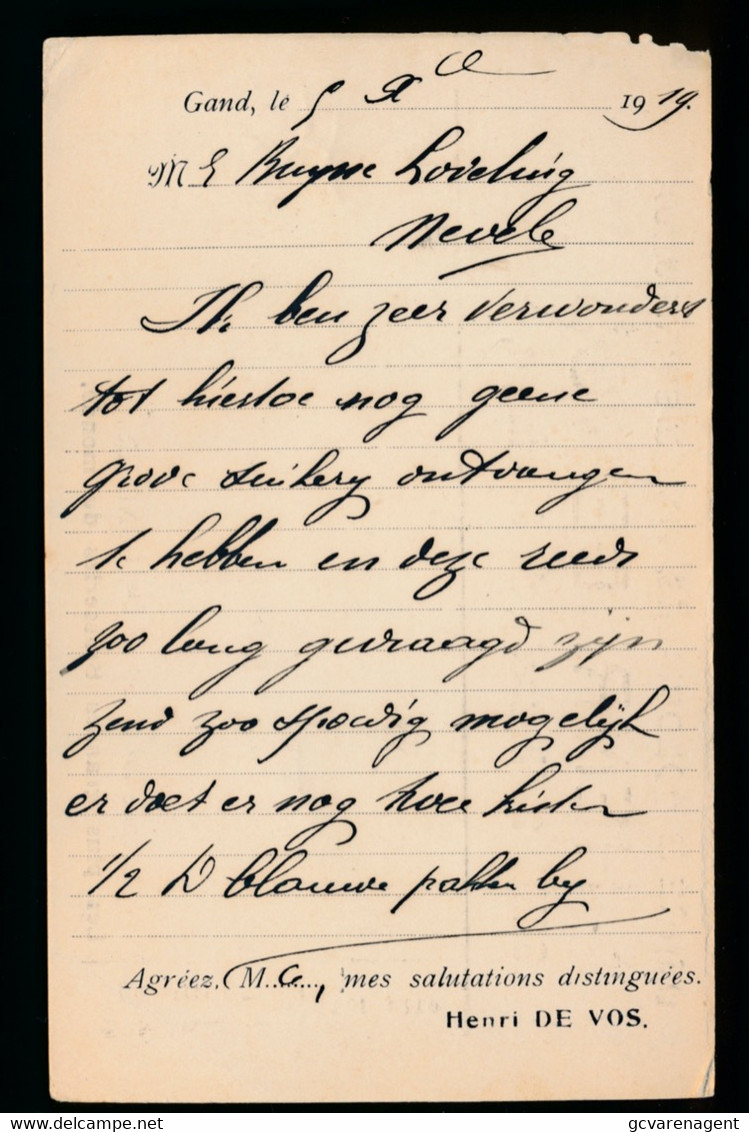 Gand, le 5 X 1919.
M E Buysse Loveling
Nevele
Ik ben zeer verwonderd
tot hiertoe nog geene
grove suikery ontvangen
te hebben en deze reeds
zoo lang gevraagd zijn
zend zoo spoedig mogelijk
er doet er nog twee kisten
1/2 D blauwe pakken by
Agréez, M..., mes salutations distinguées.
Henri DE VOS.
www.delcampe.net
gcvarenagent